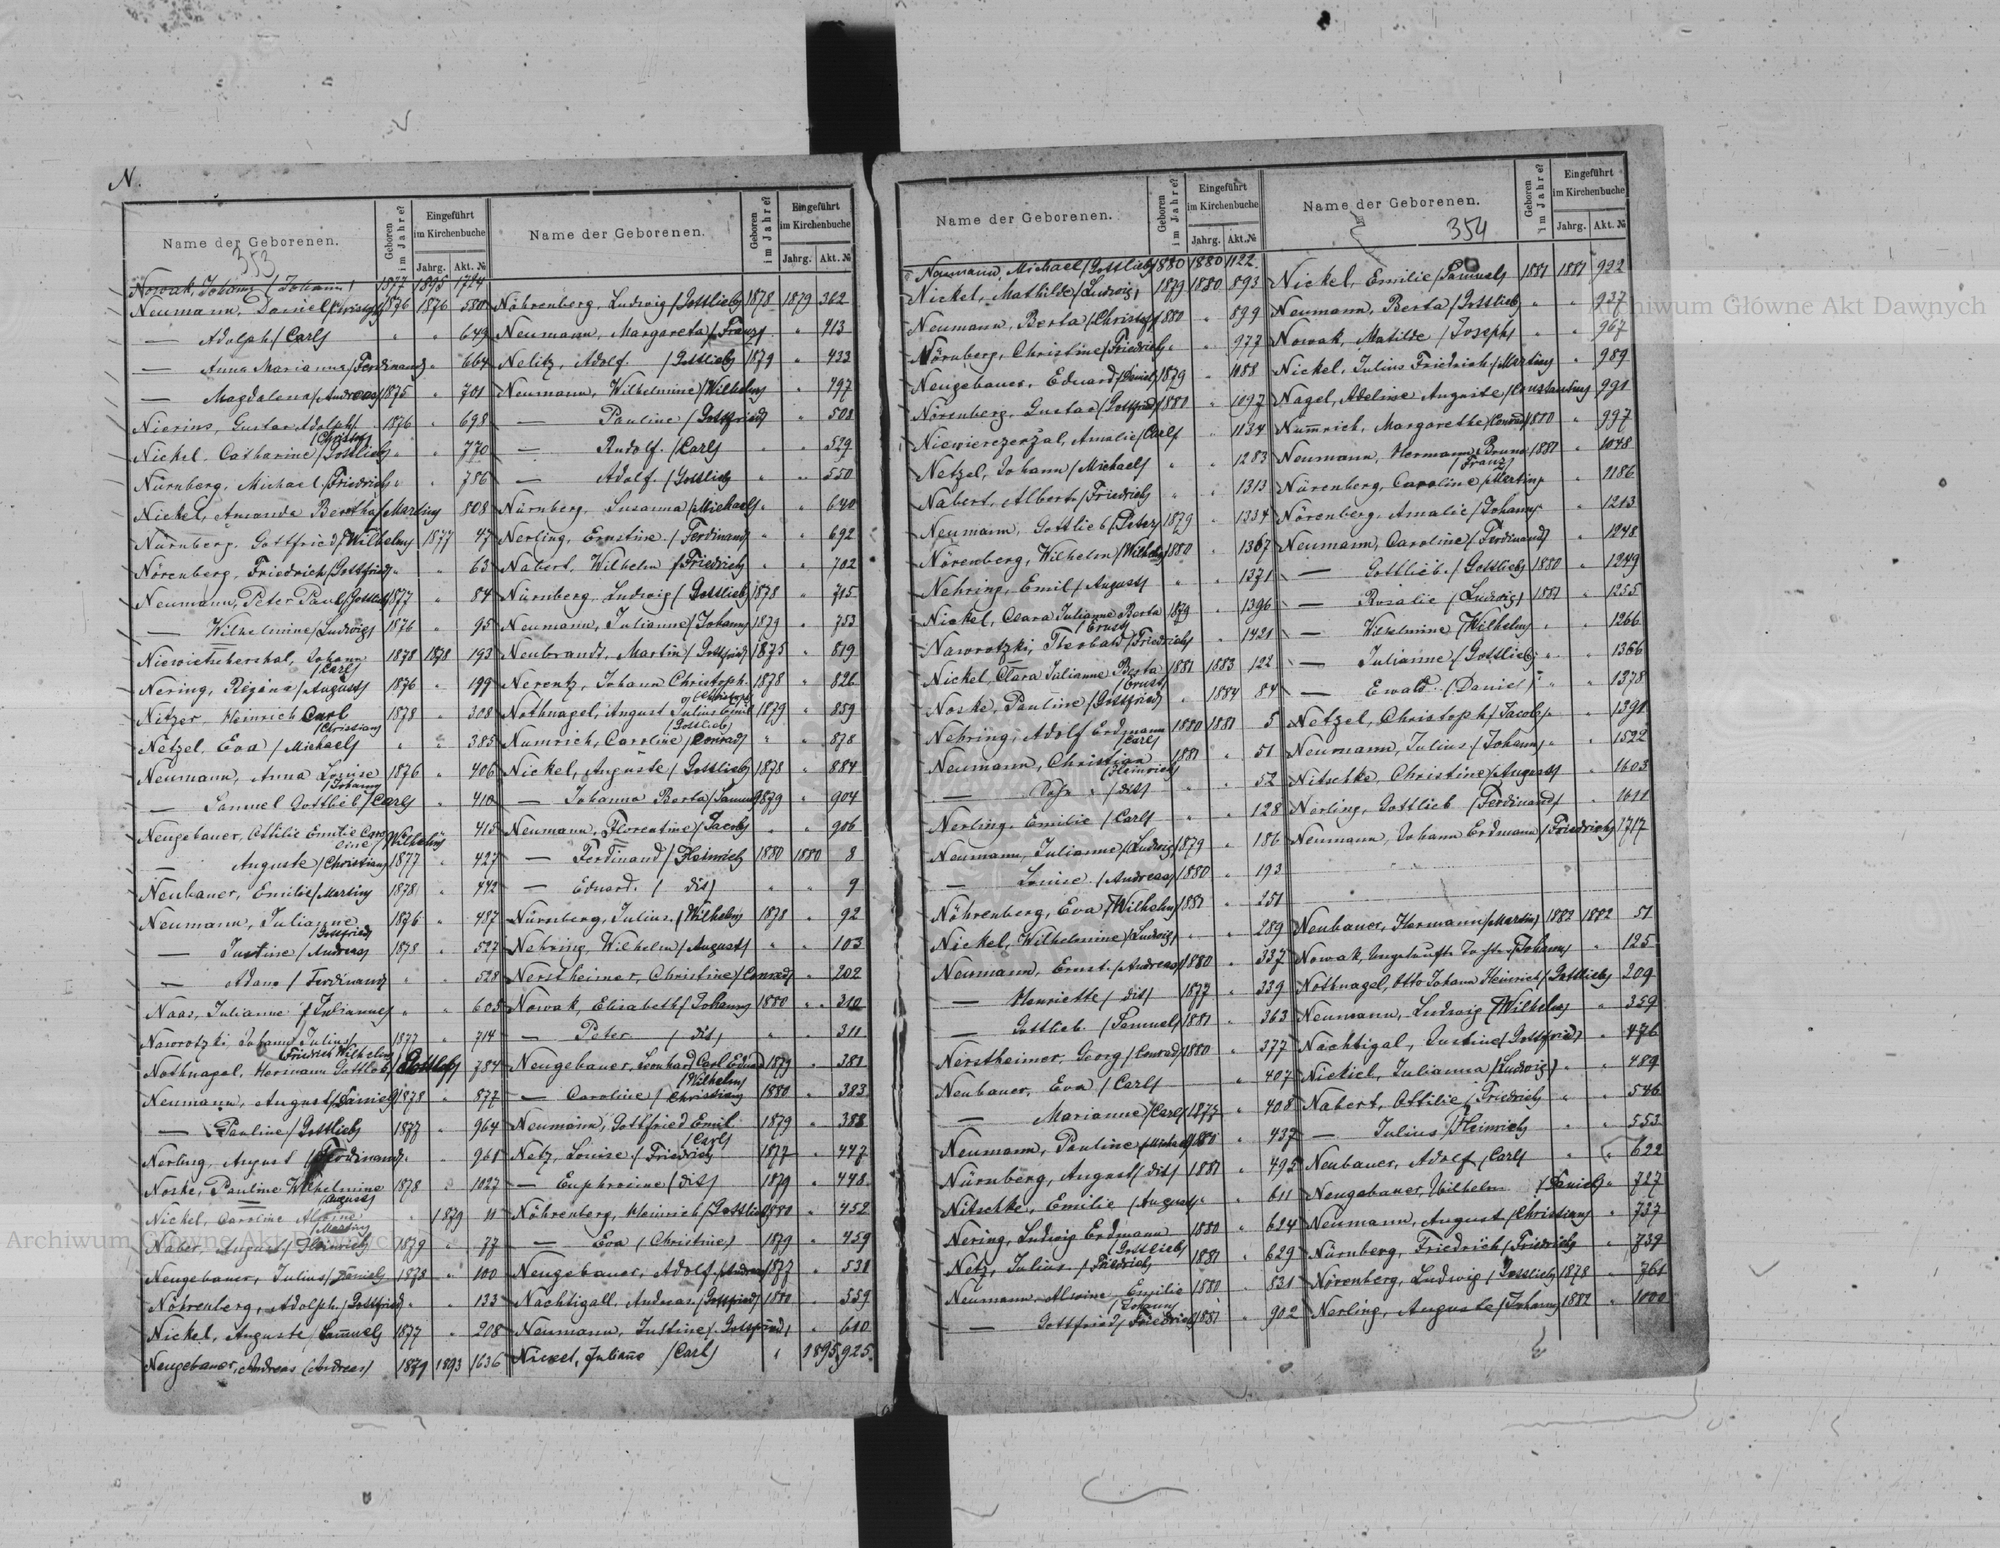 N.
Name der Geborenen. Geboren im Jahre? Eingeführt im Kirchenbuche Jahrg. Akt. №
353
Nowak, Johann (Johann) 1877 1895 1724
Neumann, Daniel (Christoph) 1876 1876 580
— Adolph (Carl) " " 649
— Anna Marianna (Ferdinand) " 664
— Magdalena (Andreas) 1875 " 701
Nierins, Gustav Adolph (Christof) 1876 " 698
Nickel, Catharine (Gottlieb) " " 770
Nürnberg, Michael (Friedrich) " " 786
Nickel, Amanda Bertha (Martin) 808
Nürnberg, Gottfried (Wilhelm) 1877 47
Nörenberg, Friedrich (Gottfried) " " 63
Neumann, Peter Paul (Gottlieb) 1877 " 84
— Wilhelmine (Ludwig) 1876 " 95
Niewietschershal, Johann (Carl) 1878 1878 193
Nering, Regina (August) 1876 " 199
Nitzer, Heinrich Carl (Christian) 1878 " 308
Netzel, Eva (Michael) " " 385
Neumann, Anna Louise (Johann) 1876 " 406
— Samuel Gottlieb (Carl) " 410
Neugebauer, Ottilie Emilie Caroline (Wilhelm) 415
— Auguste (Christian) 1877 " 427
Neubauer, Emilie (Martin) 1878 " 442
Neumann, Julianne (Gottfried) 1876 " 487
— Justine (Andreas) 1878 " 527
— Adam (Ferdinand) " " 528
Naas, Julianne (Julianne) " " 605
Nawrotzki, Johann Julius (Friedrich Wilhelm) 1877 " 714
Nothnagel, Hermann Gottlob (Gottlob) 784
Neumann, August (Daniel) 1878 " 877
— Pauline (Gottlieb) 1877 " 964
Nerling, August (Ferdinand) " " 968
Noske, Pauline Wilhelmine (August) 1878 " 1027
Nickel, Caroline (Martin) " 1879 11
Naber, August (Heinrich) 1879 " 77
Neugebauer, Julius (Daniel) 1878 " 100
Nöhrenberg, Adolph (Gottfried) " " 133
Nickel, Auguste (Samuel) 1877 " 208
Neugebauer, Andreas (Andreas) 1879 1893 1636
Name der Geborenen. Geboren im Jahre? Eingeführt im Kirchenbuche Jahrg. Akt. №
Nöhrenberg, Ludwig (Gottlieb) 1878 1879 362
Neumann, Margareta (Franz) " 413
Nelitz, Adolf (Gottlieb) 1879 " 433
Neumann, Wilhelmine (Wilhelm) " 497
— Pauline (Gottfried) " 508
— Rudolf (Carl) " " 529
— Adolf (Gottlieb) " " 550
Nürnberg, Susanna (Michael) " " 640
Nerling, Ernstine (Ferdinand) " " 692
Nabert, Wilhelm (Friedrich) " " 702
Nürnberg, Ludwig (Gottlieb) 1878 " 705
Neumann, Julianne (Johann) 1879 " 753
Neubrandt, Martin (Gottfried) 1875 " 819
Nerentz, Johann Christoph (Christof) 1878 " 826
Nothnagel, August Julius Emil (Gottlieb) 1879 " 859
Numrich, Caroline (Conrad) " " 878
Nickel, Auguste (Gottlieb) 1878 " 884
— Johanna Berta (Samuel) 1879 " 904
Neumann, Florentine (Jacob) " " 906
— Ferdinand (Heinrich) 1880 1880 8
— Eduard (dit) " " 9
Nürnberg, Julius (Wilhelm) 1878 " 92
Nehring, Wilhelm (August) " " 103
Nerstheimer, Christine (Conrad) " 202
Nowak, Elisabeth (Johann) 1880 " 310
— Peter (dit) " " 311
Neugebauer, Leonhard Carl Eduard (Wilhelm) 1879 " 381
— Caroline (Christian) 1880 " 383
Neumann, Gottfried Emil (Carl) 1879 " 388
Netz, Louise (Friedrich) 1877 " 447
— Euphrosine (dit) 1879 " 448
Nöhrenberg, Heinrich (Gottlieb) 1880 " 452
— Eva (Christine) 1879 " 459
Neugebauer, Adolf (Andreas) 1877 " 531
Nachtigall, Andreas (Gottfried) 1880 " 559
Neumann, Justine (Gottfried) " 610
Nickel, Juliane (Carl) " 1895 925
Name der Geborenen. Geboren im Jahre? Eingeführt im Kirchenbuche Jahrg. Akt. №
Neumann, Michael (Gottlieb) 1880 1880 1122
Nickel, Mathilde (Ludwig) 1879 1880 893
Neumann, Berta (Christof) 1880 " 899
Nörnberg, Christine (Friedrich) " " 977
Neugebauer, Eduard (Daniel) 1879 " 1088
Nörenberg, Gustav (Gottfried) 1880 " 1097
Niewierezerzal, Amalie (Carl) " 1134
Netzel, Johann (Michael) " " 1283
Nabert, Albert (Friedrich) " " 1313
Neumann, Gottlieb (Peter) 1879 " 1334
Nörenberg, Wilhelm (Wilhelm) 1880 " 1367
Nehring, Emil (August) " " 1371
Nickel, Clara Julianne Berta (Ernst) 1879 " 1396
Nawrotzki, Theobald (Friedrich) " 1421
Nickel, Clara Julianne Berta (Ernst) 1881 1883 122
Noske, Pauline (Gottfried) " 1884 84
Nehring, Adolf Erdmann (Carl) 1880 1881 5
Neumann, Christian (Heinrich) 1881 " 51
— (dit) " " 52
Nerling, Emilie (Carl) " " 128
Neumann, Julianne (Ludwig) 1879 " 186
— Louise (Andreas) 1880 " 193
Nöhrenberg, Eva (Wilhelm) 1881 " 251
Nickel, Wilhelmine (Ludwig) " " 289
Neumann, Ernst (Andreas) 1880 " 337
— Henriette (dit) 1877 " 339
— Gottlieb (Samuel) 1881 " 363
Nerstheimer, Georg (Conrad) 1880 " 377
Neubauer, Eva (Carl) " 407
— Marianne (Carl) 1877 " 408
Neumann, Pauline (Michael) 1880 " 437
Nürnberg, August (dit) 1881 " 495
Nitschke, Emilie (August) " " 611
Nering, Ludwig Erdmann (Gottlieb) 1880 " 624
Netz, Julius (Friedrich) 1881 " 629
Neumann, Alwine Emilie (Johann) 1880 " 831
— Gottfried (Friedrich) 1881 " 902
Name der Geborenen. Geboren im Jahre? Eingeführt im Kirchenbuche Jahrg. Akt. №
354
Nickel, Emilie (Samuel) 1881 1881 922
Neumann, Berta (Gottlieb) " " 927
Nowak, Matilde (Joseph) " " 967
Nickel, Julius Friedrich (Martin) " 989
Nagel, Adeline Auguste (Constantin) 991
Numrich, Margarethe (Conrad) 1880 " 997
Neumann, Hermann Bruno (Franz) 1881 " 1048
Nürenberg, Caroline (Martin) " 1186
Nörenberg, Amalie (Johann) " 1213
Neumann, Caroline (Ferdinand) " 1248
— Gottlieb (Gottlieb) 1880 " 1249
— Rosalie (Ludwig) 1881 " 1255
— Wilhelmine (Wilhelm) " " 1266
— Julianne (Gottlieb) " " 1366
— Ewald (Daniel) " " 1378
Netzel, Christoph (Jacob) " " 1391
Neumann, Julius (Johann) " " 1522
Nitschke, Christine (August) " 1603
Nerling, Gottlieb (Ferdinand) " 1611
Neumann, Johann Erdmann (Friedrich) 1717
Neubauer, Hermann (Martin) 1882 1882 51
Nowak, Ungetaufte Tochter (Johann) " 125
Nothnagel, Otto Johann Heinrich (Gottlieb) 209
Neumann, Ludwig (Wilhelm) " " 359
Nachtigal, Justine (Gottfried) " 476
Nickiel, Julianna (Ludwig) " " 489
Nabert, Ottilie (Friedrich) " " 546
— Julius (Heinrich) " " 553
Neubauer, Adolf (Carl) " " 622
Neugebauer, Wilhelm (Daniel) " 727
Neumann, August (Christian) " 737
Nürnberg, Friedrich (Friedrich) " 739
Nörenberg, Ludwig (Gottlieb) 1878 " 761
Nerling, Auguste (Johann) 1882 " 1000
Archiwum Główne Akt Dawnych
Archiwum Główne Akt Dawnych